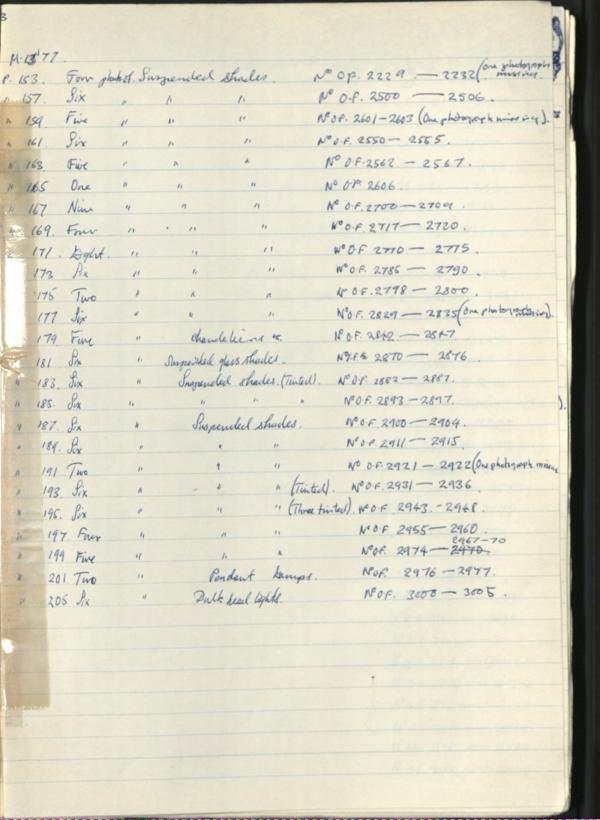 3
M. 13'77.
P. 153. Four photos of Suspended Shades. Nº O.F. 2229 — 2232 (One photograph missing.
" 157. Six " " " Nº O.F. 2500 — 2506.
" 159. Five " " " Nº O.F. 2601 - 2603 (One photograph missing).
" 161. Six " " " Nº O.F. 2550 — 2555.
" 163. Five " " " Nº O.F. 2562 — 2567.
" 165 One " " " Nº O.F. 2606.
" 167 Nine " " " Nº O.F. 2700 — 2709.
" 169. Four " " " Nº O.F. 2717 — 2720.
" 171. Eight. " " " Nº O.F. 2770 — 2775.
" 173. Six " " " Nº O.F. 2786 — 2790
" 175 Two " " " Nº O.F. 2798 — 2800.
" 177 Six " " " Nº O.F. 2829 — 2835 (One photograph missing).
" 179 Five " chandeliers Nº O.F. 2842 — 2847
" 181 Six " Suspended glass shades. Nº O.F. 2870 — 2876
" 183. Six " Suspended shades. (Tinted). Nº O.F. 2882 — 2887.
" 185. Six " " " " Nº O.F. 2893 — 2897. ).
" 187. Six " Suspended shades. Nº O.F. 2900 — 2904.
" 189. Six " " " Nº O.F. 2911 — 2915.
" 191 Two " " " Nº O.F. 2921 — 2922 (One photograph missing
" 193. Six " " " (Tinted). Nº O.F. 2931 — 2936
" 195. Six " " " (Three tinted). Nº O.F. 2943. - 2948.
" 197. Four " " " Nº O.F. 2955 — 2960.
2967-70
" 199 Five " " " Nº O.F. 2974 — 2970.
" 201 Two " Pendant Lamps. Nº O.F. 2976 — 2977.
" 205 Six " Bulk head lights. Nº O.F. 3000 — 3005.